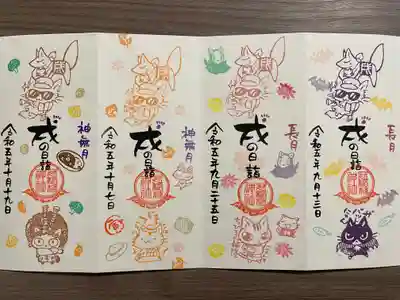 長月
戌の日詣
令和五年九月十三日
長月
戌の日詣
令和五年九月二十五日
神無月
戌の日詣
令和五年十月七日
神無月
戌の日詣
令和五年十月十九日